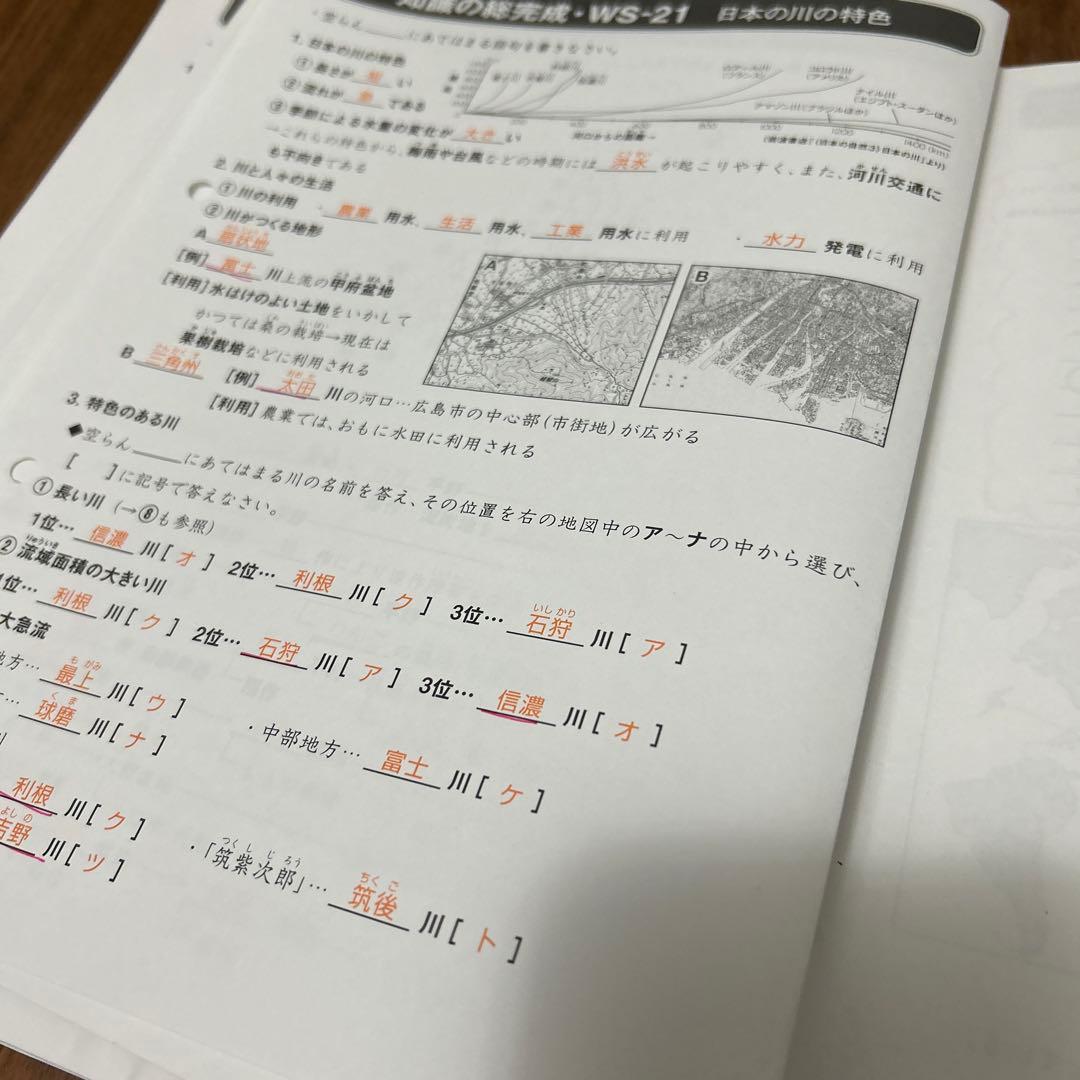 知識の総完成・WS-21 日本の川の特色
・空らん＿＿にあてはまる語句を書きなさい。
1. 日本の川の特色
①長さが 短 い
②流れが 急 である
③季節による水量の変化が 大き い
→これらの特色から、梅雨や台風などの時期には 洪水 が起こりやすく、また、河川交通に
も不向きである
(フランス)
(アメリカ)
ナイル川
(エジプト・スーダンほか)
アマゾン川(ブラジルほか)
200
400
600
800
1000
1200
1400(km)
河口からの距離→
(岩波書店「〈日本の自然3〉日本の川」より)
2. 川と人々の生活
①川の利用 ・ 農業 用水、 生活 用水、 工業 用水に利用 ・ 水力 発電に利用
②川がつくる地形
A 扇状地
[例] 富士 川上流の甲府盆地
[利用]水はけのよい土地をいかして
かつては桑の栽培→現在は
果樹栽培などに利用される
B 三角州 [例] 太田 川の河口…広島市の中心部(市街地)が広がる
[利用]農業では、おもに水田に利用される
A
B
3. 特色のある川
◆空らん＿＿にあてはまる川の名前を答え、その位置を右の地図中のア～ナの中から選び、
[ ]に記号で答えなさい。
①長い川 (→⑧も参照)
1位… 信濃 川[ オ ] 2位… 利根 川[ ク ] 3位… 石狩 川[ ア ]
②流域面積の大きい川
1位… 利根 川[ ク ] 2位… 石狩 川[ ア ] 3位… 信濃 川[ オ ]
大急流
地方… 最上 川[ ウ ] ・中部地方… 富士 川[ ケ ]
… 球磨 川[ ナ ]
利根 川[ ク ] ・「筑紫次郎」… 筑後 川[ ト ]
吉野 川[ ツ ]